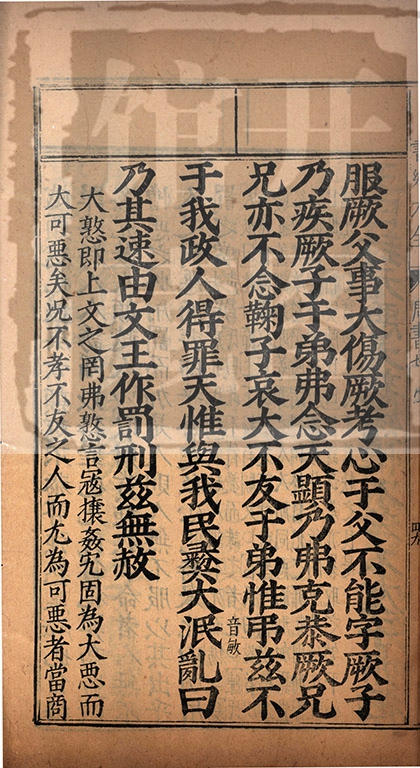 服厥父事大傷厥考心于父不能字厥子
乃疾厥子于弟弗念天顯乃弗克恭厥兄
兄亦不念鞠子哀大不友于弟惟弔兹不
于我政人得罪天惟與我民彞大泯亂曰
音敏
乃其速由文王作罰刑兹無赦
大憝即上文之罔弗憝言寇攘姦宄固為大惡而
大可惡矣况不孝不友之人而尤為可惡者當商